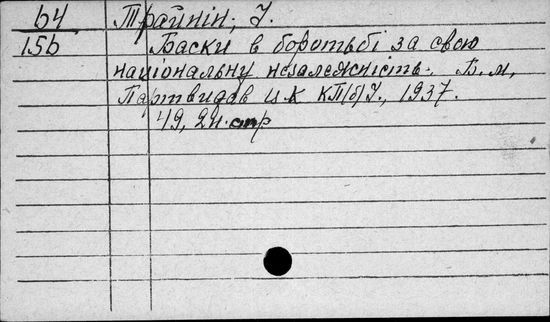 64 Трайнін, І.
15б Баски в боротьбі за свою
національну незалежність. Б.м,
Партвидав ЦК КП(б)У., 1937.
49, 2н. стр